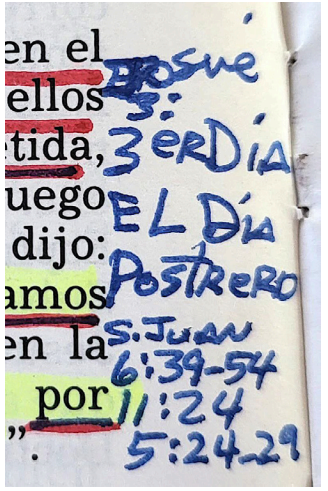 en el
ellos
etida,
uego
dijo:
amos
en la
por
”.
Josue
3:
3erDía
EL Día
Postrero
S.Juan
6:39-54
11:24
5:24-29